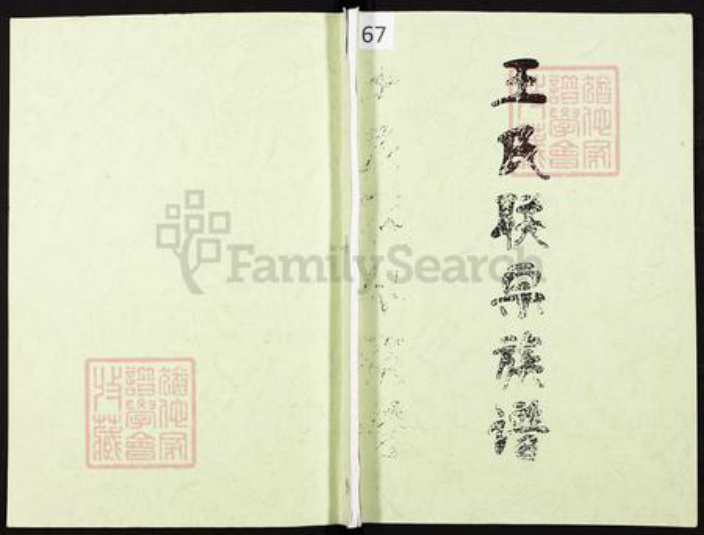 67
王氏联宗族谱
FamilySearch
猶他家
譜學會
攷藏
猶他家
譜學會
攷藏